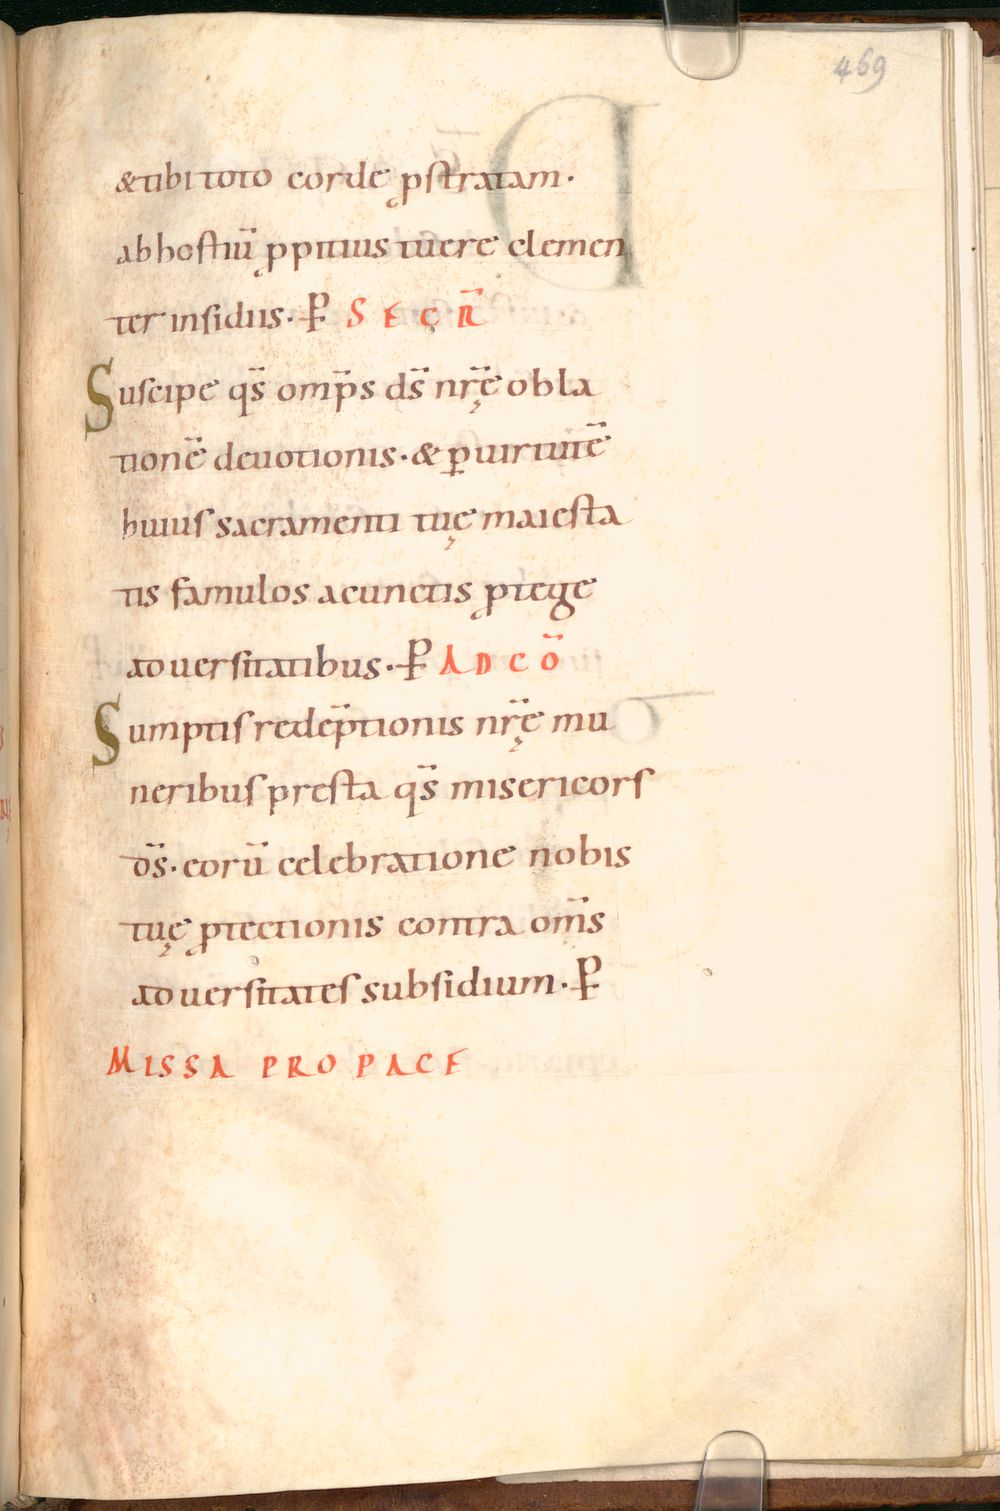 469
& tibi toto corde ꝓstratam·
ab hostiū ꝓpitius tuere clemen
ter insidiis· P̄ SECR̄
Suscipe qs̄ omp̄s ds̄ nr̄ę obla
tionē deuotionis· & ꝑ uirtutē
huius sacramenti tuę maiesta
tis famulos a cunctis ꝓtege
aduersitatibus· P̄ AD CŌ
Sumptis redēptionis nr̄ę mu
neribus presta qs̄ misericors
ds̄· eorū celebratione nobis
tuę ꝓtectionis contra om̄s
aduersitates subsidium· P̄
MISSA PRO PACE